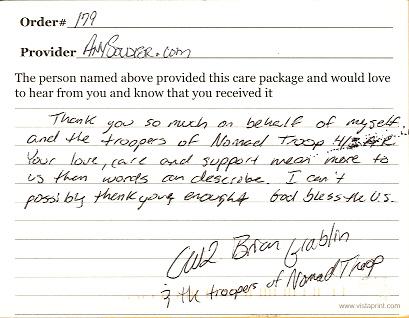 Order# 179
Provider AnySoldier.com
The person named above provided this care package and would love
to hear from you and know that you received it
Thank you so much on behalf of myself
and the troopers of Nomad Troop 4/3
Your love, care and support mean more to
us then words can describe. I can't
possibly thank you enough God bless the U.S.
CW2 Brian
& the troopers of Nomad Troop
www.vistaprint.com